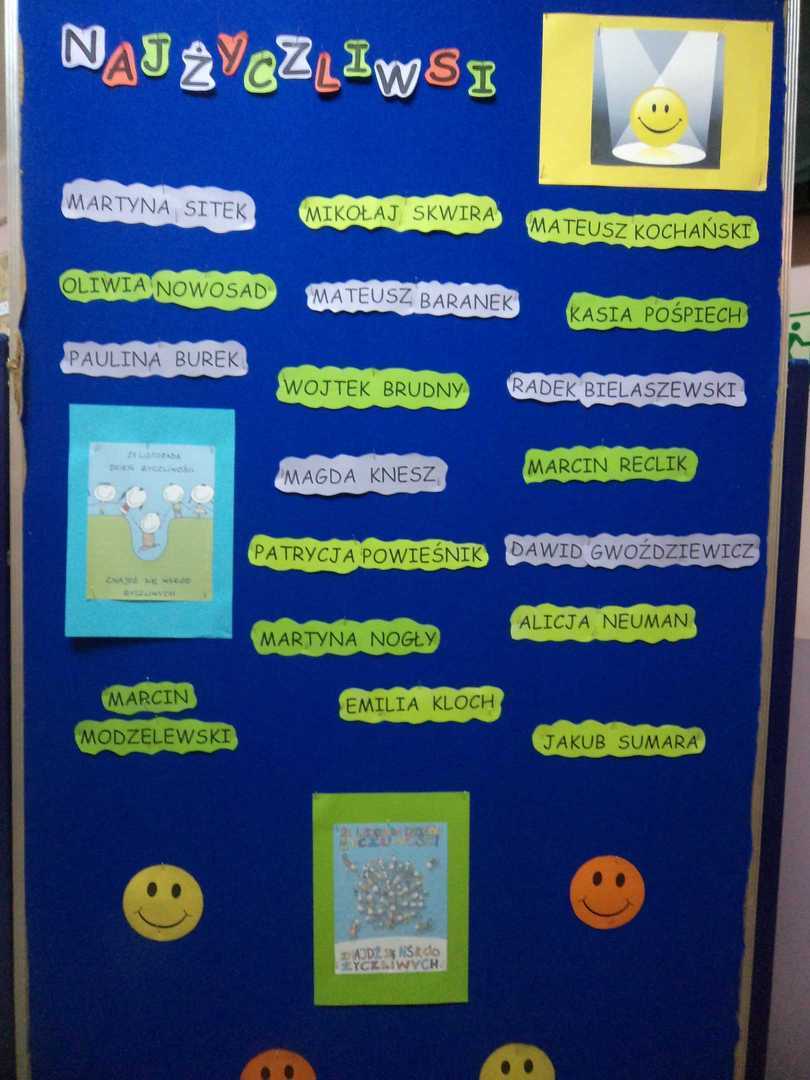 NAJŻYCZLIWSI
MARTYNA SITEK
MIKOŁAJ SKWIRA
MATEUSZ KOCHAŃSKI
OLIWIA NOWOSAD
MATEUSZ BARANEK
KASIA POŚPIECH
PAULINA BUREK
WOJTEK BRUDNY
RADEK BIELASZEWSKI
21 LISTOPADA
DZIEŃ ŻYCZLIWOŚCI
ZNAJDŹ SIĘ WŚRÓD
ŻYCZLIWYCH
MAGDA KNESZ
MARCIN RECLIK
PATRYCJA POWIEŚNIK
DAWID GWOŹDZIEWICZ
MARTYNA NOGŁY
ALICJA NEUMAN
MARCIN
MODZELEWSKI
EMILIA KLOCH
JAKUB SUMARA
21 LISTOPADA DZIEŃ
ŻYCZLIWOŚCI
ZNAJDŹ SIĘ WŚRÓD
ŻYCZLIWYCH